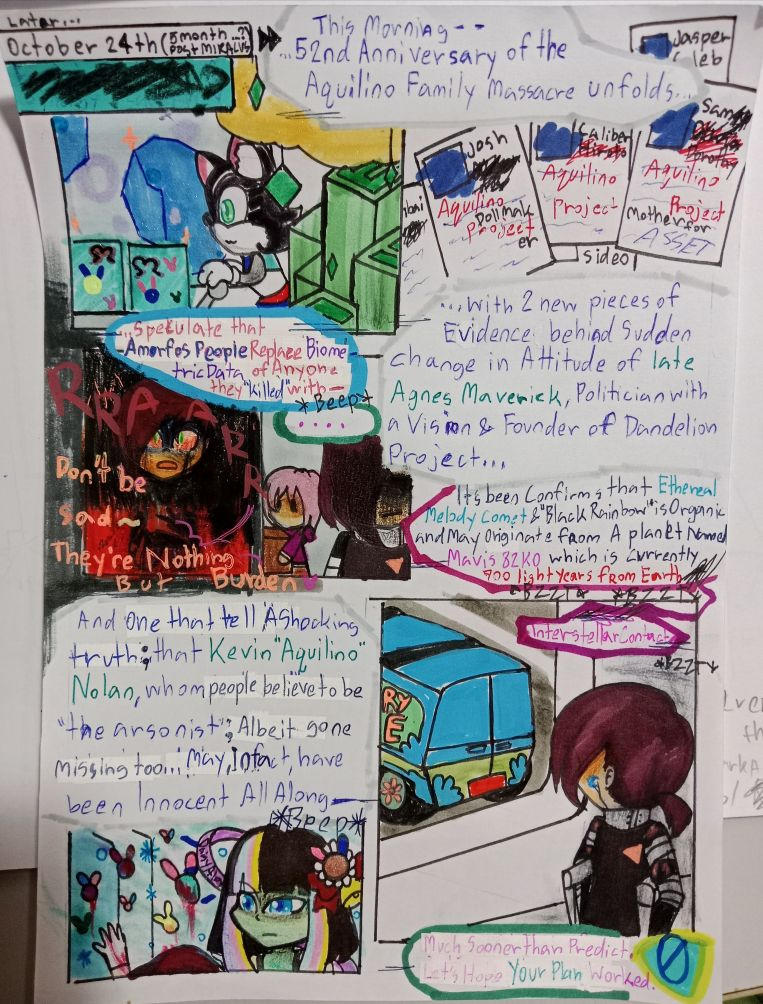 Later...
October 24th (5 month...?
post MIRALUS
This Morning--
...52nd Anniversary of the
Aquilino Family Massacre unfolds...
Jasper
Caleb
Josh
Aquilino
Project
Caliber
Aquilino
Project
Sam
Aquilino
Project
Mother for
ASSET
side0
...Speculate that
-Amorfos People Replace Biome-
tric Data of Anyone
they "killed" with-
*Beep*
....
...with 2 new pieces of
Evidence behind Sudden
change in Attitude of late
Agnes Maverick, Politician with
a Vision & Founder of Dandelion
Project...
RRRAARRR
Don't be
Sad~
They're Nothing
But Burden
It's been Confirms that Ethereal
Melody Comet & "Black Rainbow" is Organic
and May Originate from A planet Named
Mavis 82K0 which is currently
900 light years from Earth
*BZZT* *BZZT*
Interstellar Contact
*BZZT*
And one that tell A Shocking
truth; that Kevin "Aquilino"
Nolan, whom people believe to be
"the arsonist"; Albeit gone
missing too... May, Infact, have
been Innocent All Along-
*Beep*
RY
E
Much Sooner than Predict.
Let's Hope Your Plan Worked.